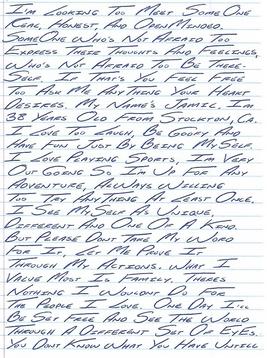 I'm Looking Too Meet SomeOne
Real, Honest, And OpenMinded.
SomeOne Who's Not Afraid Too
Express Their Thoughts And Feelings,
Who's Not Afraid Too Be There-
Self. If That's You Feel Free
Too Ask Me Any Thing Your Heart
Desires. My Name's Jamil. I'm
38 Years Old From Stockton, CA.
I Love Too Laugh, Be Goofy And
Have Fun Just By Being My Self.
I Love Playing Sports, I'm Very
Out Going So I'm Up For Any
Adventure, Always Willing
Too Try Any Thing At Least Once.
I See My Self As Unique,
Different And One Of A Kind.
But Please Dont Take My Word
For It, Let Me Prove It
Through My Actions. What I
Value Most Is Family, Theres
Nothing I Wouldnt Do For
The People I Love. One Day I'll
Be Set Free And See The World
Through A Different Set Of Eyes.
You Dont Know What You Have Untill